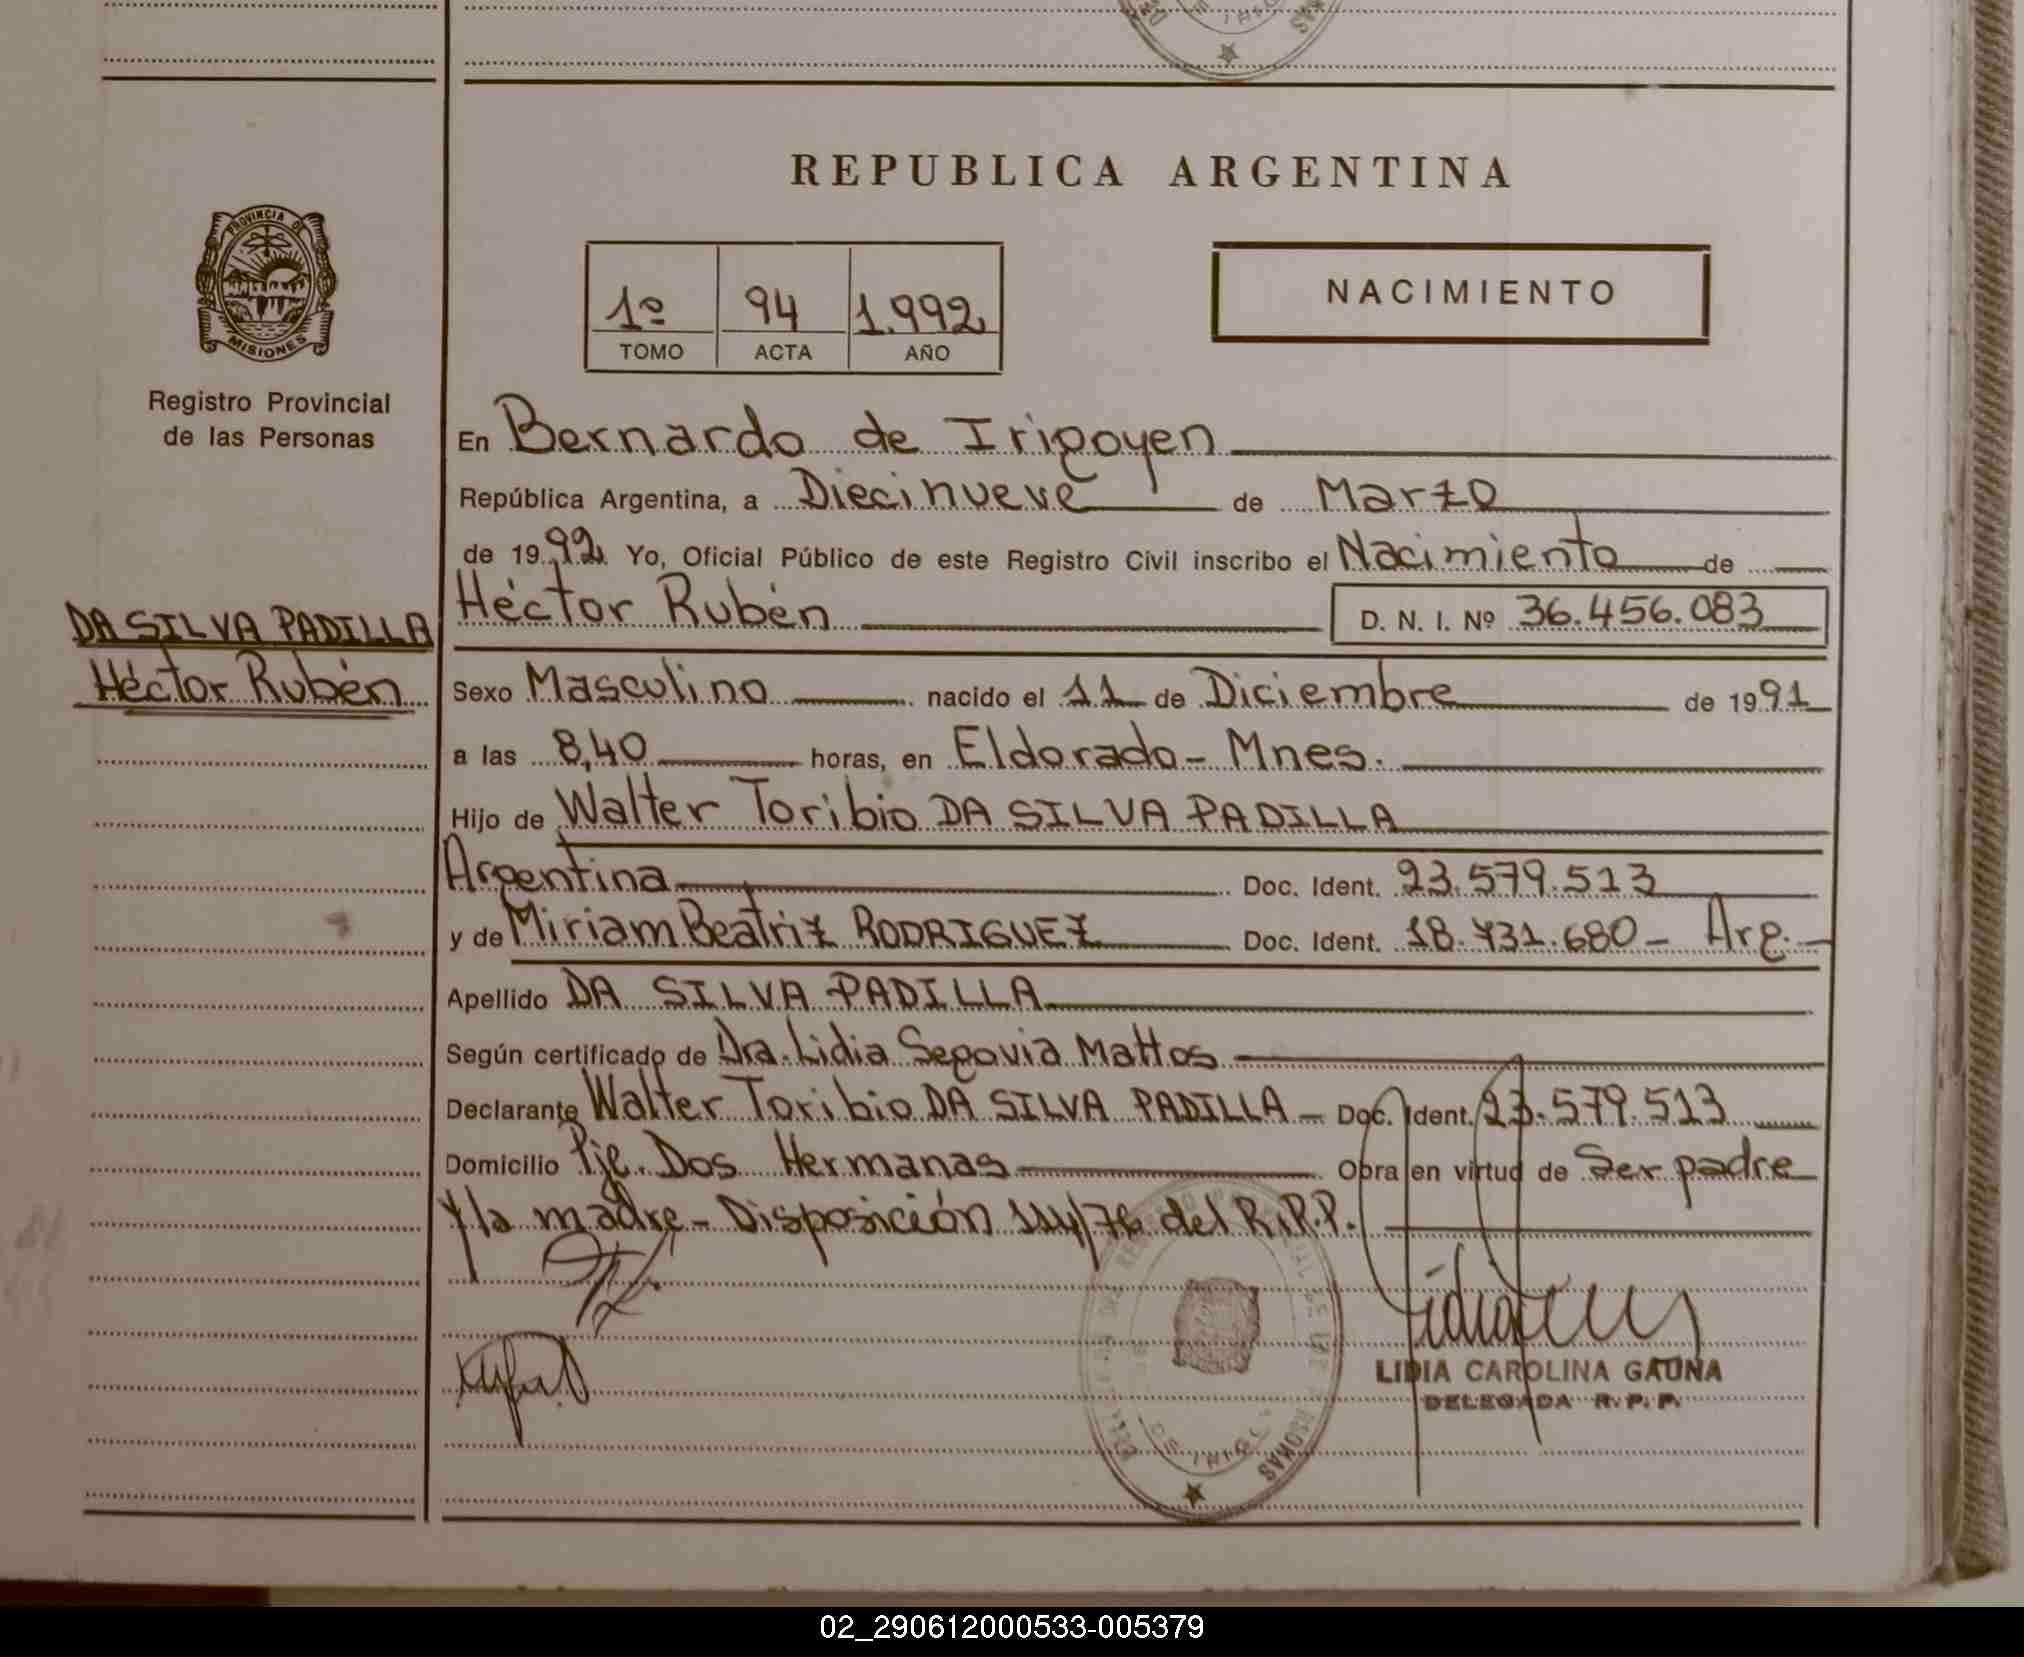 REPUBLICA ARGENTINA
PROVINCIA DE
MISIONES
Registro Provincial
de las Personas
1º 94 1.992
TOMO ACTA AÑO
NACIMIENTO
En Bernardo de Irigoyen
República Argentina, a Diecinueve de Marzo
de 1992 Yo, Oficial Público de este Registro Civil inscribo el Nacimiento de
DA SILVA PADILLA
Héctor Rubén
Héctor Rubén D. N. I. Nº 36.456.083
Sexo Masculino nacido el 11 de Diciembre de 1991
a las 8,40 horas, en Eldorado - Mnes.
Hijo de Walter Toribio DA SILVA PADILLA
Argentina Doc. Ident. 23.579.513
y de Miriam Beatriz RODRIGUEZ Doc. Ident. 18.731.680 - Arg.
Apellido DA SILVA PADILLA
Según certificado de Dra. Lidia Segovia Mattos
Declarante Walter Toribio DA SILVA PADILLA - Doc. Ident. 23.579.513
Domicilio Pje. Dos Hermanas Obra en virtud de Ser padre
y la madre - Disposición 114/76 del R.P.P.
LIDIA CAROLINA GAUNA
DELEGADA R. P. P.
02_290612000533-005379